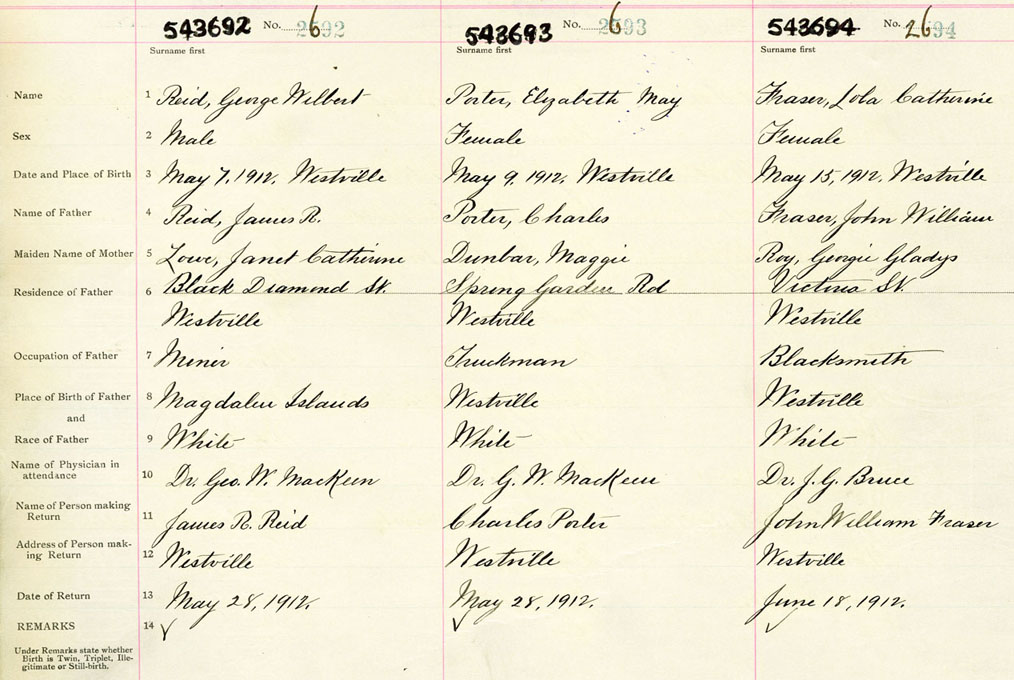 543692 No. 2692 543693 No. 2693 543694 No. 2694
Surname first Surname first Surname first
Name 1 Reid, George Wilbert Porter, Elizabeth May Fraser, Lola Catherine
Sex 2 Male Female Female
Date and Place of Birth 3 May 7, 1912. Westville May 9, 1912. Westville May 15, 1912. Westville
Name of Father 4 Reid, James R. Porter, Charles Fraser, John William
Maiden Name of Mother 5 Lowe, Janet Catherine Dunbar, Maggie Roy, Georgie Gladys
Residence of Father 6 Black Diamond St. Spring Garden Rd Victoria St.
Westville Westville Westville
Occupation of Father 7 Miner Truckman Blacksmith
Place of Birth of Father 8 Magdalen Islands Westville Westville
and
Race of Father 9 White White White
Name of Physician in
attendance 10 Dr. Geo. W. MacKeen Dr. G. W. MacKeen Dr. J. G. Bruce
Name of Person making
Return 11 James R. Reid Charles Porter John William Fraser
Address of Person mak-
ing Return 12 Westville Westville Westville
Date of Return 13 May 28, 1912. May 28, 1912. June 18, 1912.
REMARKS 14 ✓ ✓ ✓
Under Remarks state whether
Birth is Twin, Triplet, Ille-
gitimate or Still-birth.